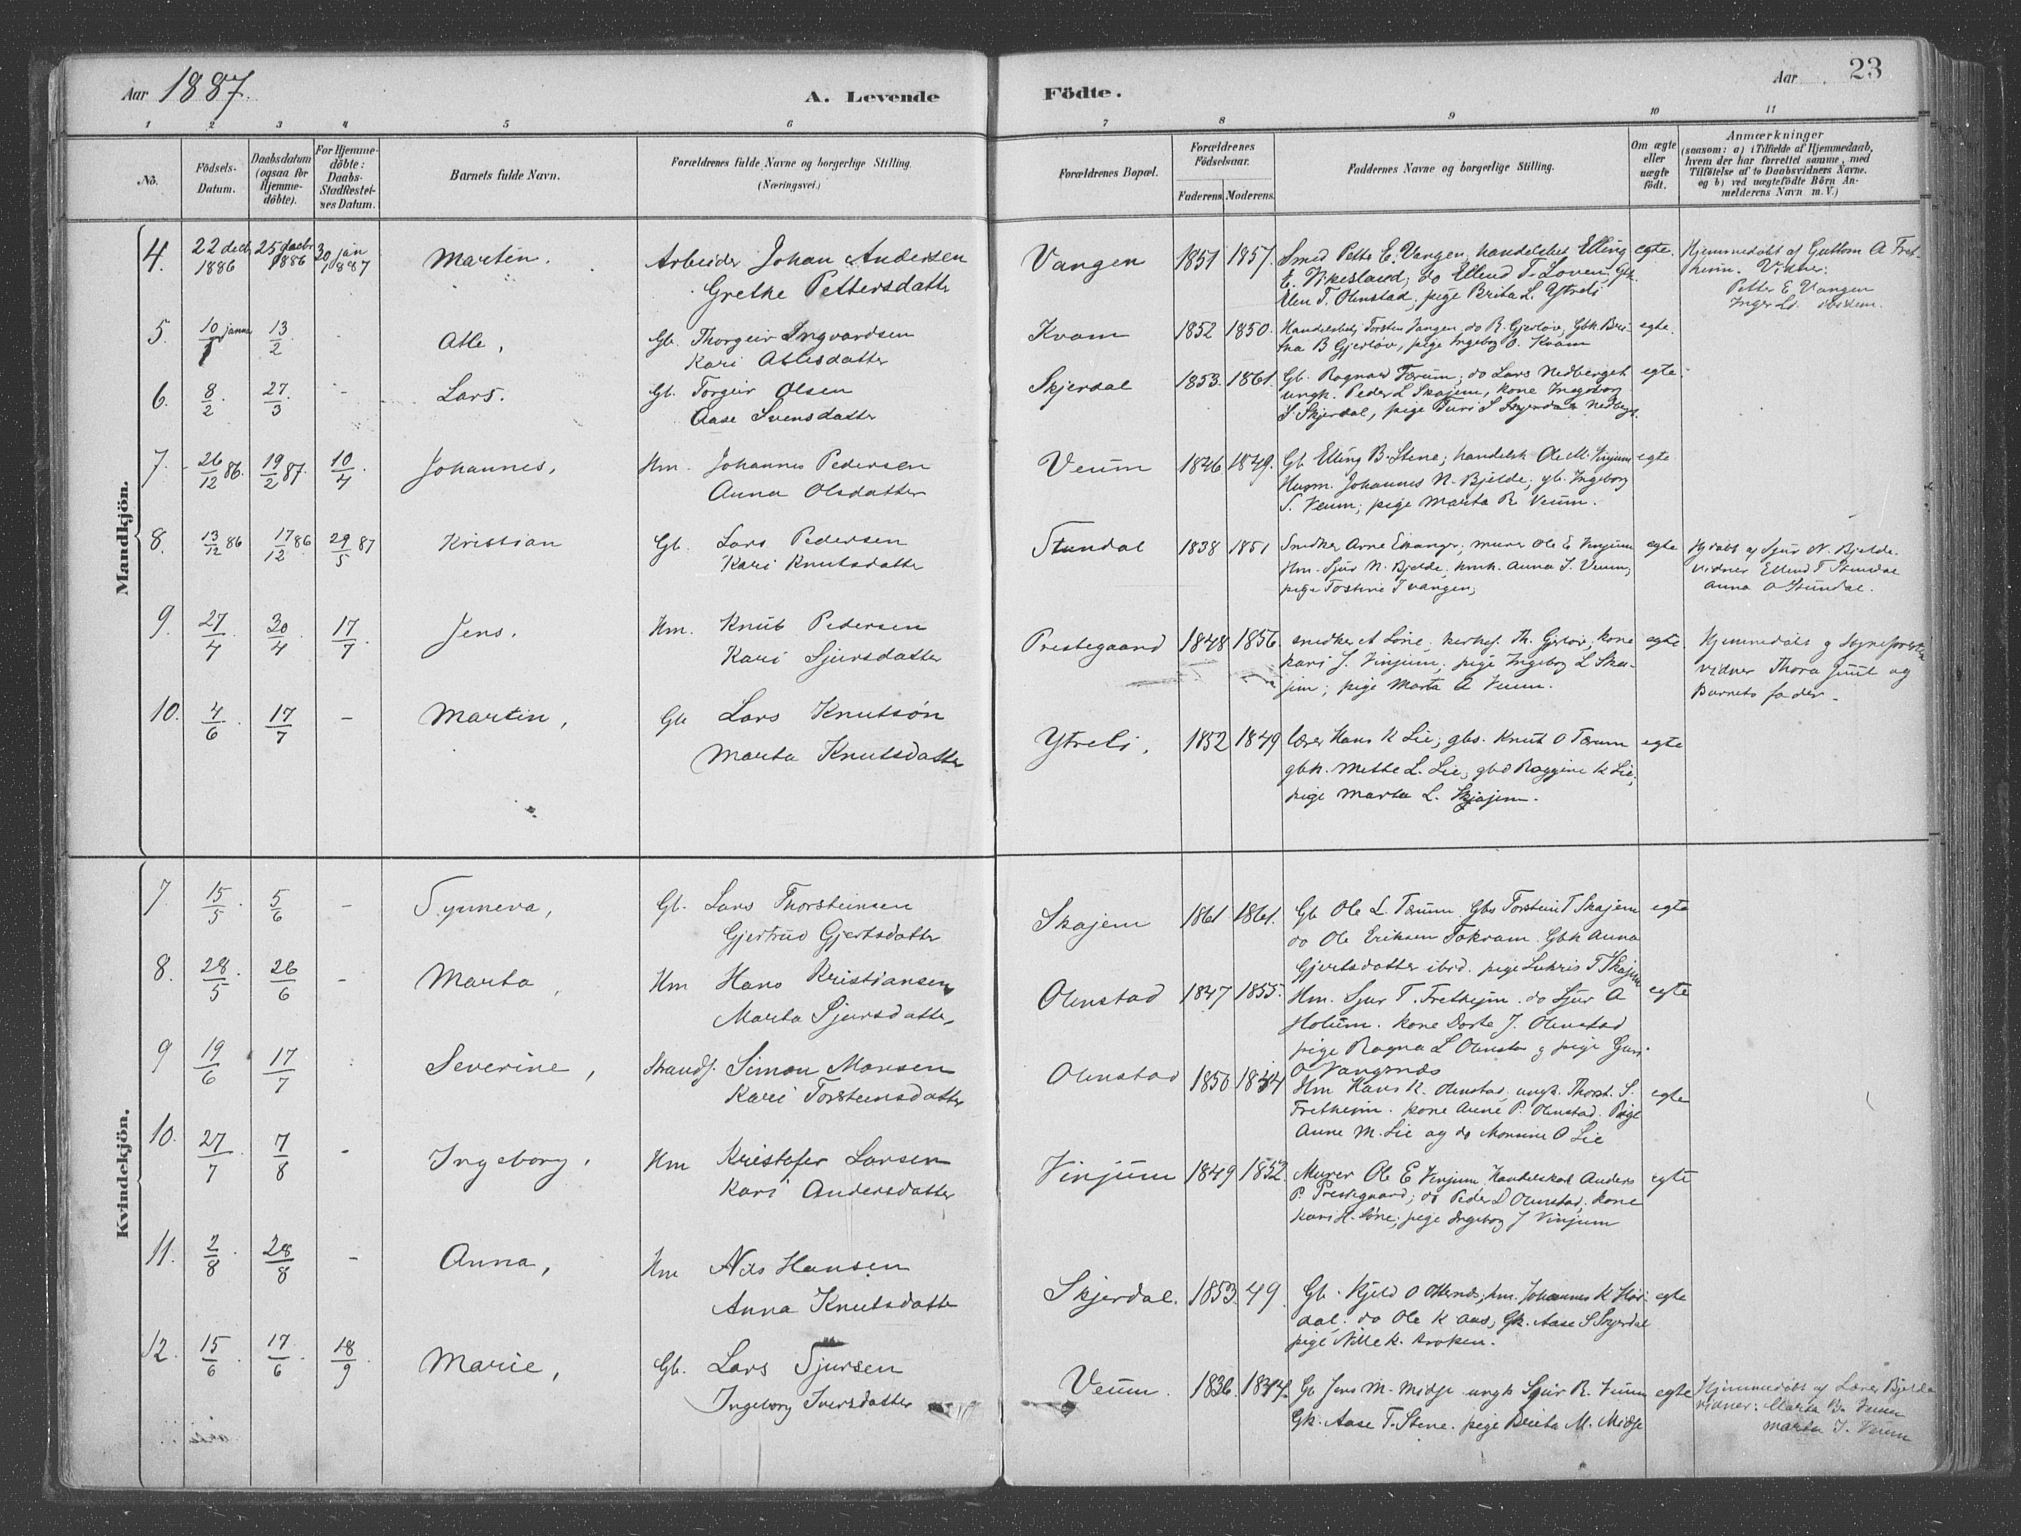 Aar 1887.
A. Levende Födte.
Aar 23
1 2 3 4 5 6 7 8 9 10 11
No.
Födsels-Datum.
Daabsdatum (ogsaa for Hjemmedöbte).
For Hjemmedöbte: Daabs-Stadfestelses Datum.
Barnets fulde Navn.
Forældrenes fulde Navne og borgerlige Stilling.
(Næringsvei.)
Forældrenes Bopæl.
Forældrenes Födselsaar.
Faderens. Moderens.
Faddernes Navne og borgerlige Stilling.
Om ægte eller uægte födt.
Anmærkninger
(saasom: a) i Tilfælde af Hjemmedaab, hvem der har forrettet samme, med Tilföielse af to Daabsvidners Navne. og b) ved uægtefödte Börn Anmelderens Navn m. V.)
Mandkjön.
4. 22 decb 1886 25 decbr 1886 30 jan 1887 Martin. Arbeider Johan Andersen Vangen 1851 1857. Smed Petter E. Vangen, handelsbet Elling egte. Hjemmedöbt af Guttom A Fret-
Grethe Pettersdatter E. Vikesland; do Ellend T. Loven, Gk. heim. Vidner:
Elen T. Olnstad, pige Brita L. Ytreli Petter E Vangen
5. 10/1 januar 13/2 - Atle, Gb. Thorgeir Ingvardsen Kvam 1852 1850. Handelsbetj Torsten Vangen, do R. Gjerlöv, Gbk Bri- egte.
Kari Atlesdatter tha B Gjerlöv, pige Ingeborg O. Kvam
6. 8/2. 27/3. - Lars. Gb. Torgeir Olsen Skjerdal 1853. 1861. Gb. Ragnar Tærum, do Lars Nedberget egte.
Aase Svensdatter ungk. Peder L Skajem, kone Ingeborg
S Skjerdal, pige Turi S Skjerdal Nedberg.
7. 26/12 86. 19/2 87. 10/4. Johannes, Hm. Johannes Pedersen Veum 1846 1849. Gb. Elling B. Stene; handelsk Ole M. Vinjum egte
Anna Olsdatter Husm. Johannes N. Bjelde; gk. Ingeborg
S. Veum; pige Marta R Veum.
8. 13/12 86 17/12 86 29/5 87 Kristian Gb. Lars Pedersen Stundal 1838 1851 Snedker Arne Eikanger; murer Ole E Vinjum egte Hjdöbt af Sjur N. Bjelde.
Kari Knutsdatter Hm. Sjur N. Bjelde, hmk. Anna S. Veum; vidner Ellend T Stundal
pige Tostine I vangen; Anna O Stundal.
9. 27/4. 30/4. 17/7. Jens. Hm. Knut Pedersen Prestegaard 1848 1856 snedker A Löne, Th. Gjerlöv; kone egte. Hjemmedöbt af Sogneprest
Kari Sjursdatter Kari J. Vinjum; pige Ingeborg L Ska- vidner Thora Juul og
jem; pige Marta A Veum. Barnets fader.
10. 4/6 17/7 - Martin, Gb Lars Knutsön Ytreli, 1852 1849 lærer Hans K Lie; gbs. Knut O Tærum egte
Marta Knutsdatter gbk. Mette L. Lie; gbd Raggine K Lie;
pige Marta L. Skjajem.
Kvindekjön.
7. 15/5. 5/6 - Synneva, Gb. Lars Thorsteinsen Skajem 1861 1861. Gb Ole L. Tærum. Gbs Torstein T Skajem egte
Gjertrud Gjertsdatter do Ole Eriksen Tokvam. Gbk Anna
Gjertsdatter ibid. pige Lukris T Skajem
8. 28/5. 26/6 - Marta, Hm Hans Kristiansen Olnstad 1847 1855. Hm. Sjur T. Fretheim. do Sjur A egte
Marta Sjursdatter, Holum. kone Dorte J. Olnstad
pige Ragna L Olnstad og pige Guri
O. Vangsnes
9 19/6 17/7 Severine, Strands. Simon Monsen Olnstad 1850 1844 Hm Hans K. Olnstad, ungk. Thorst. S. egte
Kari Torsteinsdatter Fretheim. kone Anne P. Olnstad. Pige
Anne M. Lie og do O Lie
10. 27/7 7/8 - Ingeborg, Hm Kristofer Larsen Vinjum 1849 1852. Murer Ole E Vinjum, Handelskarl Anders egte
Kari Andersdatter P. Prestegaard; do Peder D Olnstad, kone
Kari H. Löne; pige Ingeborg J Vinjum
11. 2/8. 28/8 - Anna, Hm Nils Hansen Skjerdal. 1853. 49. Gb. Kjeld O Otternes, hm. Johannes K egte
Anna Knutsdatter do Ole K Aas; Gk. Aase S Skjerdal
pige Nille K. Kroken.
12. 15/6. 17/6. 18/9. Marie, Gb. Lars Sjursen Veum. 1836. 1844. Gb Jens M. Midje ungk Sjur R. Veum egte Hjemmedöbt af Lærer Bjelde
Ingeborg Iversdatter Gk. Aase T. Stene. pige Brita M. Midje vidner: Marta B. Veum
Marta J. Veum